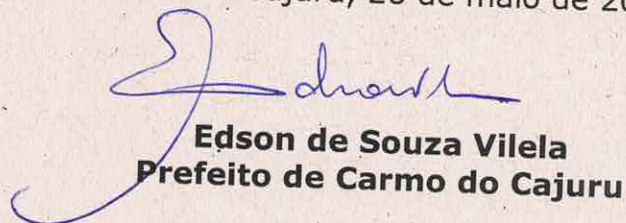 de maio de
Edson de Souza Vilela
Prefeito de Carmo do Cajuru